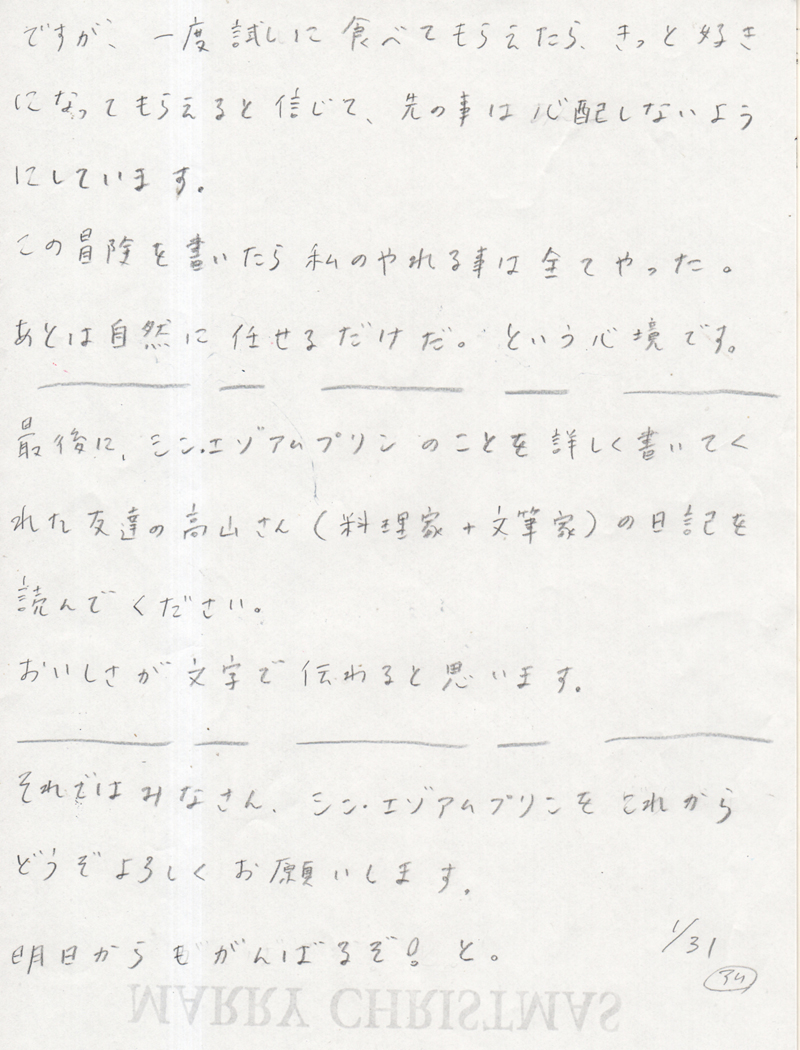 ですが、一度試しに食べてもらえたら、きっと好き
になってもらえると信じて、先の事は心配しないよう
にしています。
この冒険を書いたら私のやれる事は全てやった。
あとは自然に任せるだけだ。という心境です。
最後に、シン・エゾアムプリンのことを詳しく書いてく
れた友達の高山さん(料理家+文筆家)の日記を
読んでください。
おいしさが文字で伝わると思います。
それではみなさん、シン・エゾアムプリンをこれから
どうぞよろしくお願いします。
明日からもがんばるぞ!と。
1/31
34
MARRY CHRISTMAS